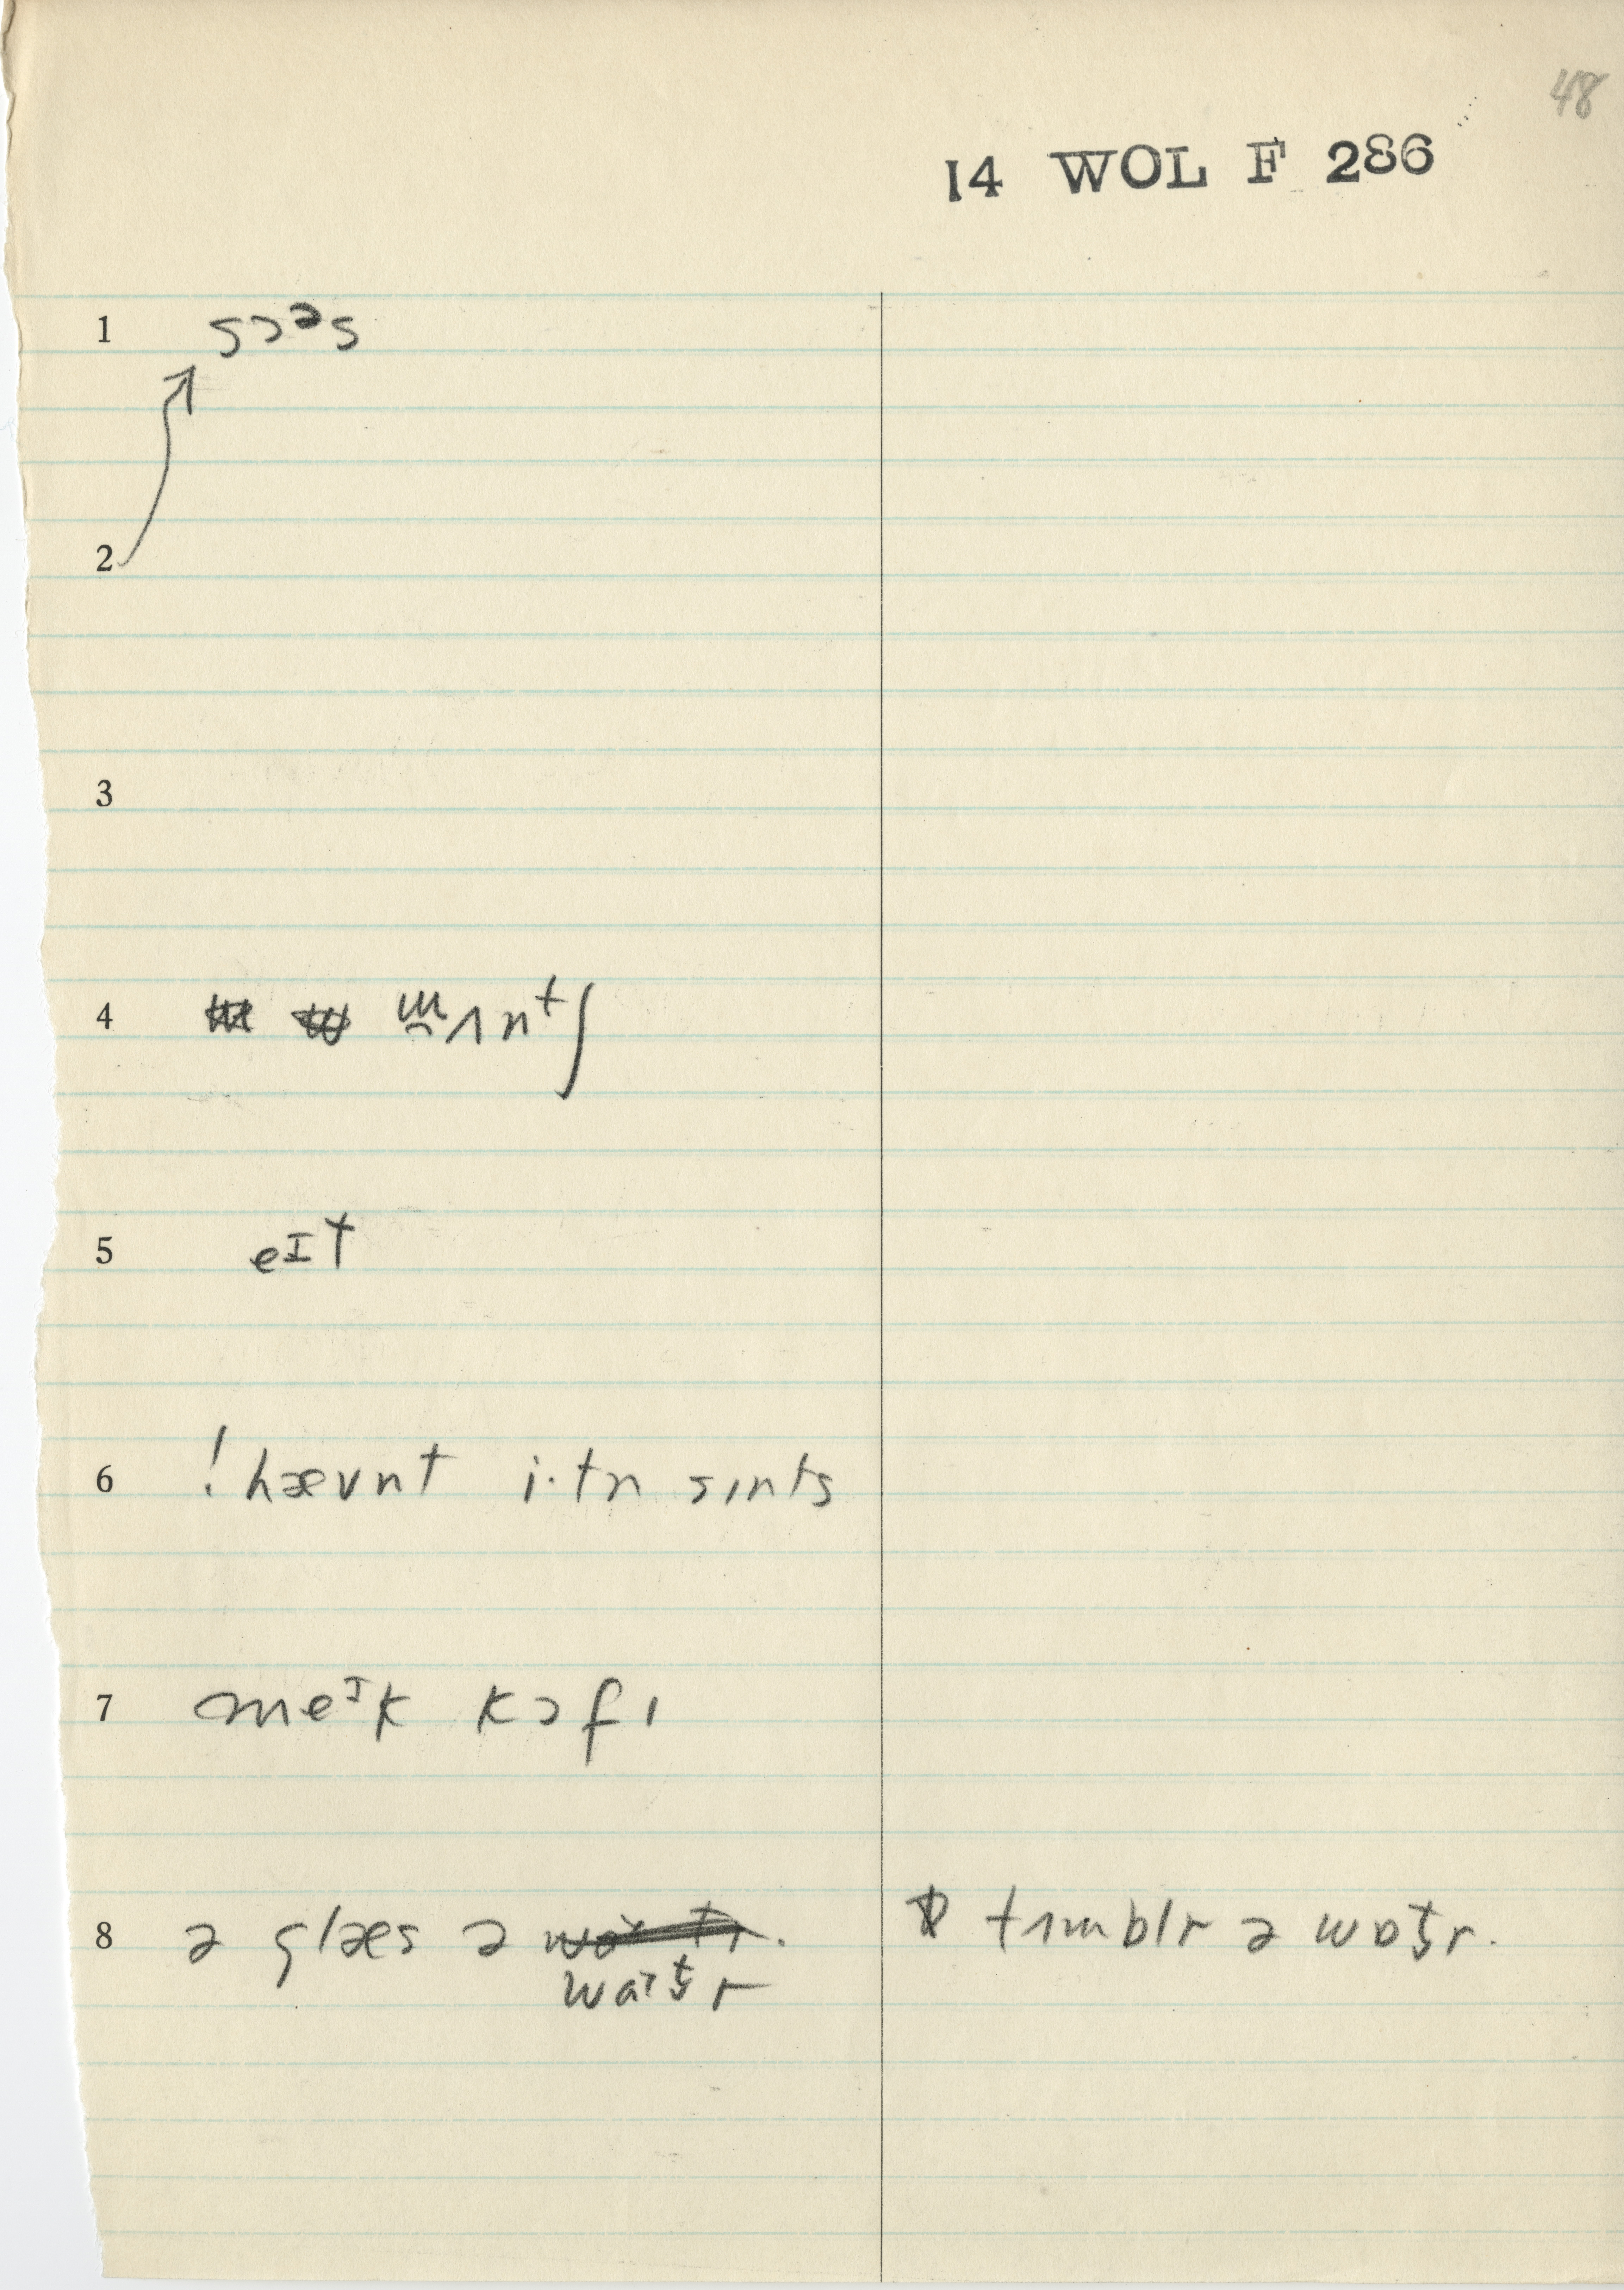 48
14 WOL F 286
1 sɔᵊs
2
3
4 m̯ʌntʃ
5 eᴵt
6 !hævnt i·tn sɪnts
7 meᴵk kɔfɪ
8 ə glæs ə wɒt̬r. tʌmblr ə wɒt̬r.
wa·t̬r